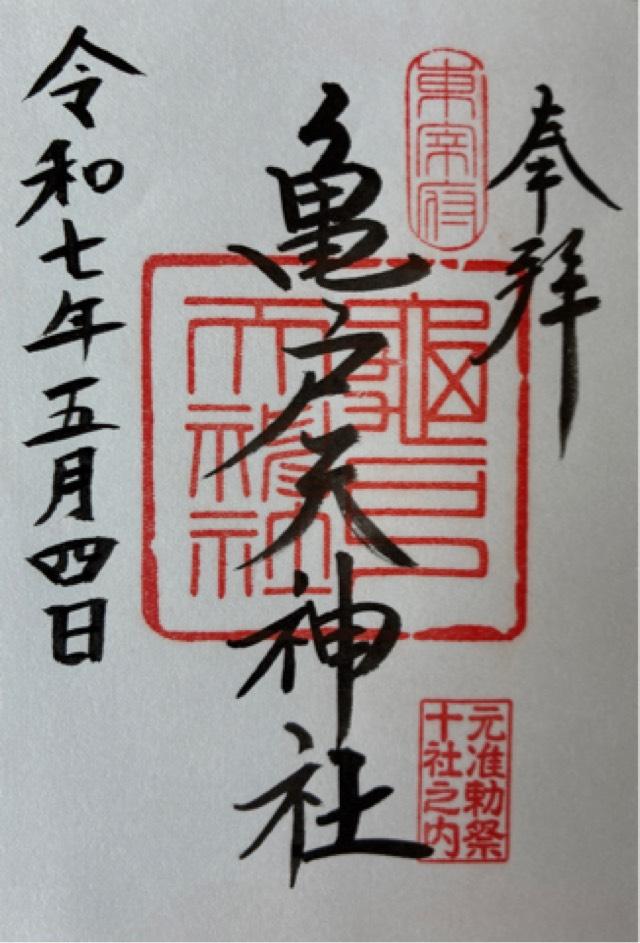 奉拝
東宰府
亀戸天神社
亀戸
天神社
元准勅祭
十社之内
令和七年五月四日